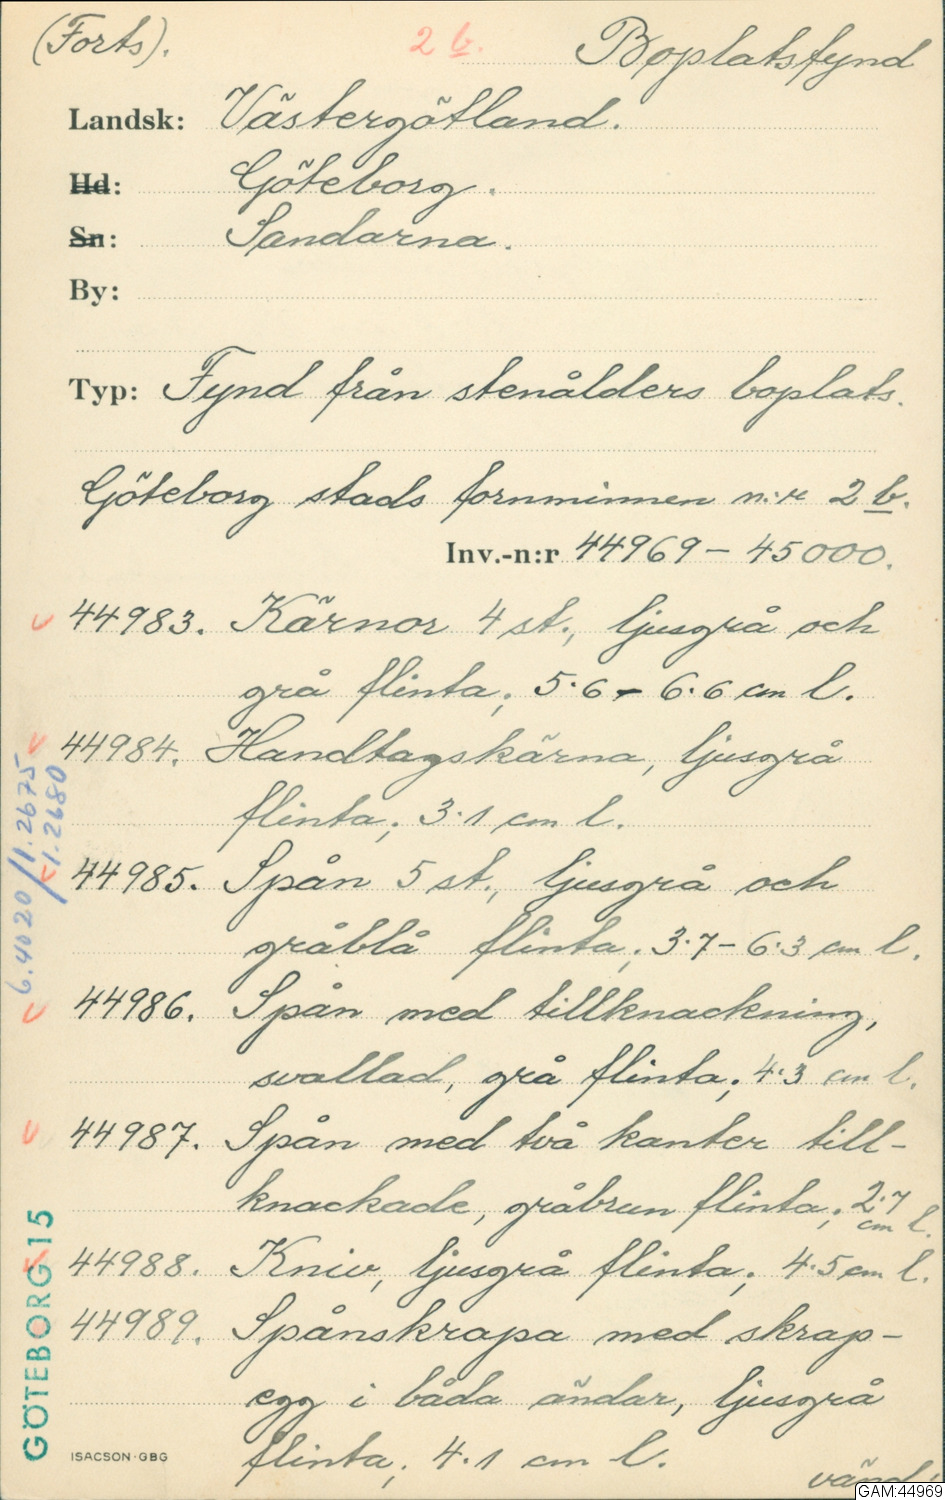 (Forts). 2 b. Boplatsfynd
Landsk: Västergötland.
Hd: Göteborg.
Sn: Sandarna.
By:
Typ: Fynd från stenålders boplats.
Göteborg stads fornminnen n:r 2 b.
Inv.-n:r 44969 - 45000.
44983. Kärnor 4 st., ljusgrå och
grå flinta; 5.6 - 6.6 cm l.
44984. Handtagskärna, ljusgrå
flinta; 3.1 cm l.
44985. Spån 5 st., ljusgrå och
gråblå flinta; 3.7 - 6.3 cm l.
44986. Spån med tillknackning,
svallad, grå flinta; 4.3 cm l.
44987. Spån med två kanter till-
knackade, gråbrun flinta; 2.7 cm l.
44988. Kniv, ljusgrå flinta; 4.5 cm l.
44989. Spånskrapa med skrap-
egg i båda ändar, ljusgrå
flinta; 4.1 cm l.
vänd!
6.4020/1.2675
/-1.2680
GÖTEBORG 15
ISACSON·GBG
GAM:44969